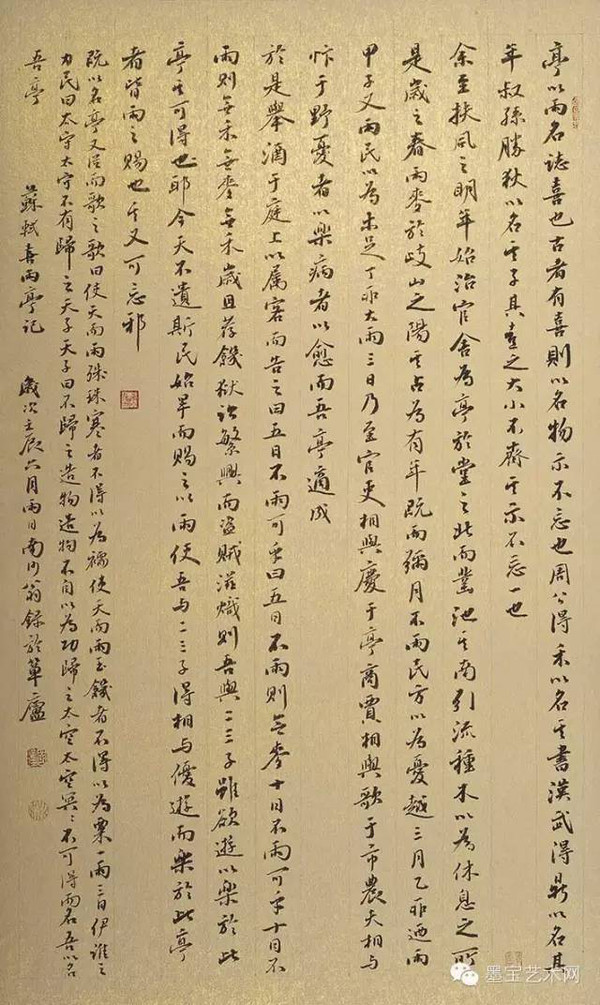 亭以雨名誌喜也古者有喜則以名物示不忘也周公得禾以名其書漢武得鼎以名其
年叔孫勝狄以名其子其喜之大小不齊其示不忘一也
余至扶風之明年始治官舍為亭於堂之北而鑿池其南引流種木以為休息之所
是歲之春雨麥於岐山之陽其占為有年既而彌月不雨民方以為憂越三月乙卯迺雨
甲子又雨民以為未足丁卯大雨三日乃至官吏相與慶于亭商賈相與歌于市農夫相与
忭于野憂者以樂病者以愈而吾亭適成
於是舉酒于庭上以属客而告之曰五日不雨可乎曰五日不雨則無麥十日不雨可乎十日不
雨則無禾無麥無禾歲且荐饑獄訟繁興而盜賊滋熾則吾與二三子雖欲遊以樂於此
亭其可得也耶今天不遺斯民始旱而賜之以雨使吾与二三子得相与優遊而樂於此亭
者皆雨之賜也其又可忘邪
既以名亭又從而歌之歌曰使天而雨珠寒者不得以為襦使天而雨玉饑者不得以為粟一雨三日伊誰之
力民曰太守太守不有歸之天子天子曰不歸之造物造物不自以為功歸之太空太空冥冥不可得而名吾以名
吾亭
蘇軾喜雨亭記 歲次壬辰六月雨日南沙翁錄於草廬
墨宝艺术网